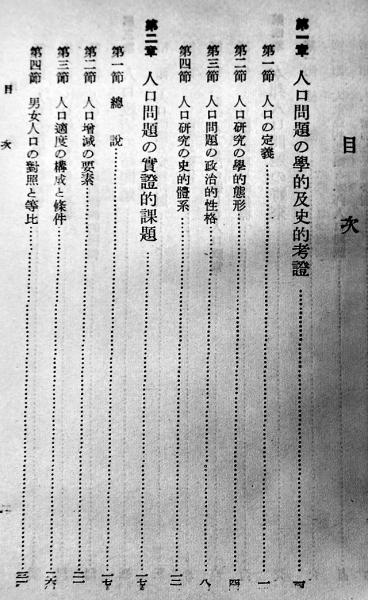 目次
第一章 人口問題の學的及史的考證
第一節 人口の定義 一
第二節 人口研究の學的態形 四
第三節 人口問題の政治的性格 八
第四節 人口研究の史的體系
第二章 人口問題の實證的課題 一七
第一節 總說 一七
第二節 人口增減の要素
第三節 人口適度の構成と條件 二六
第四節 男女人口の對照と等比
目次